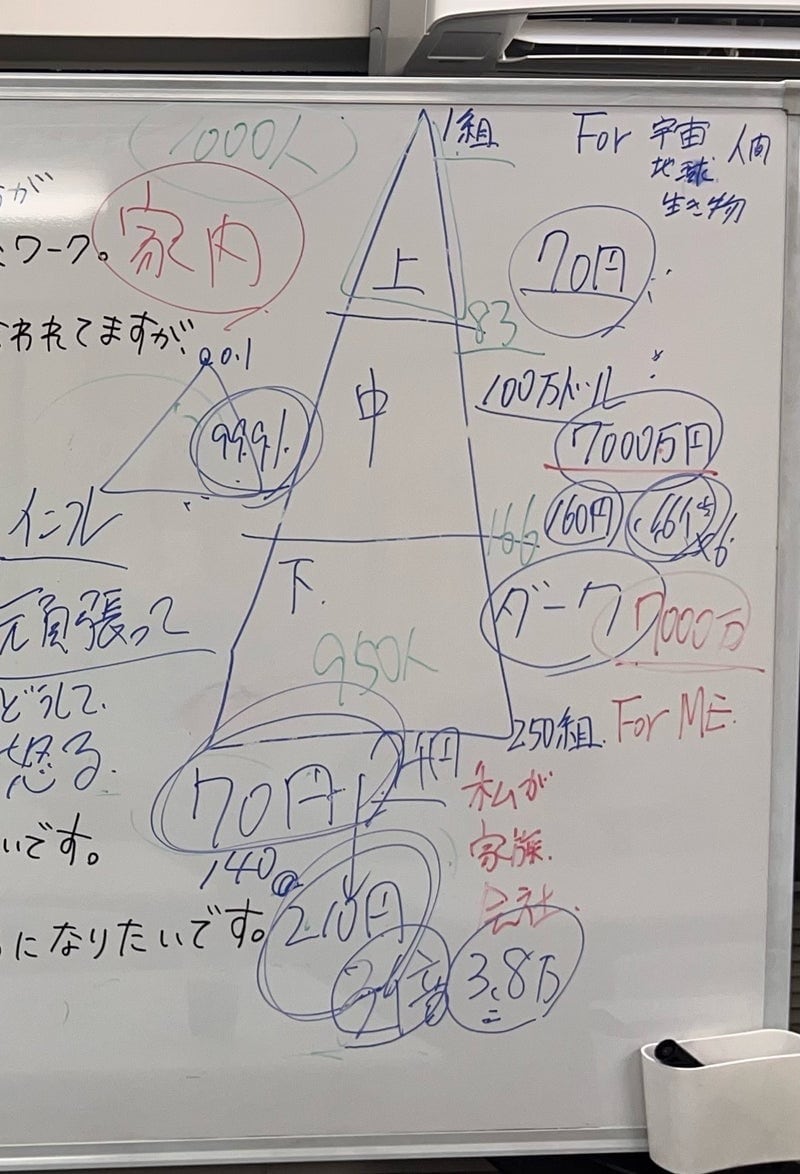 1000人
1組
For 宇宙 人間
地球
生き物
が
ワーク。
家内
70円
上
われてますが
0.1
83
中
100万ドル
99.9%
7000万円
インフレ
166
160円
下
ダーク
7000万
頑張って
950人
どうして
250組
For ME
怒る
70円
4円
私が
いです。
家族
140
会社
210円
になりたいです。
3.8万